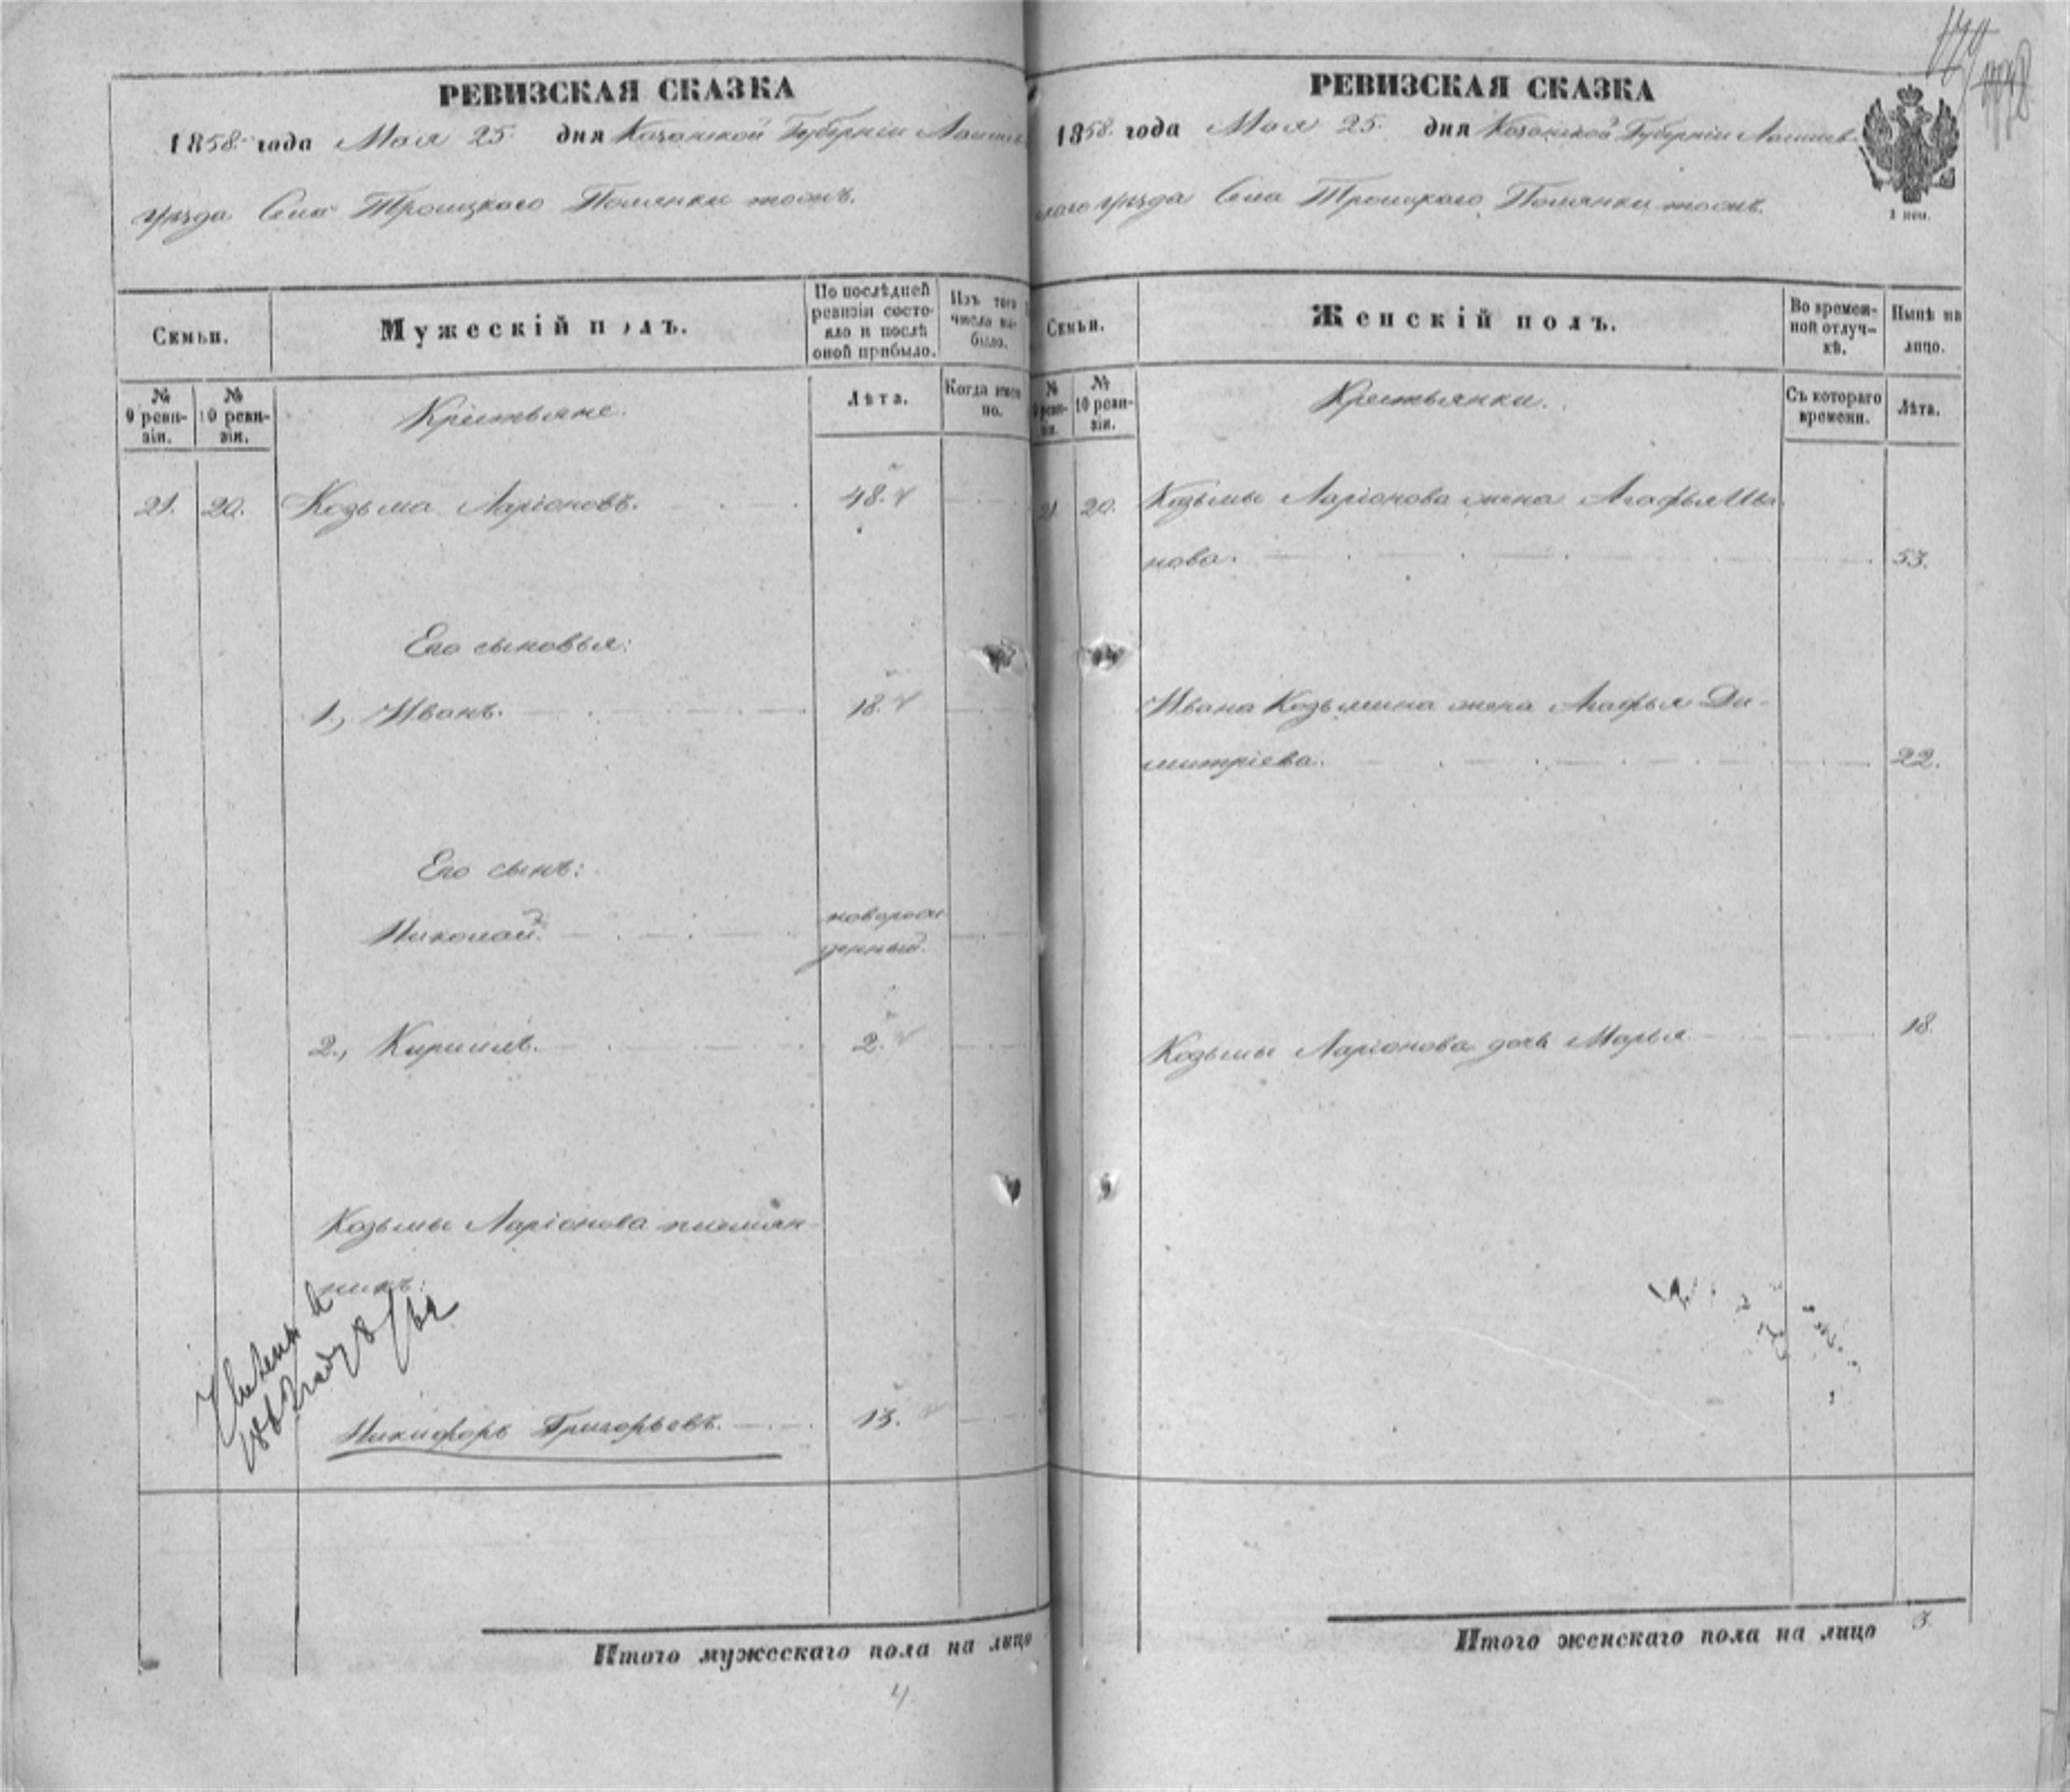 РЕВИЗСКАЯ СКАЗКА
1858 года Мая 25 дня Казанской Губерніи Лаишев
уѣзда Села Троицкаго Полянки тожъ.
Семьи.
Мужескій полъ.
По послѣдней
ревизіи состо-
яло и послѣ
оной прибыло.
Изъ того
числа вы-
было.
№
9 реви-
зіи.
№
10 реви-
зіи.
Крестьяне.
Лѣта.
Когда имен
но.
21. 20. Козьма Ларіоновъ. 48.
Его сыновья:
1., Иванъ. 18.
Его сынъ:
Николай. новорож
денный.
2., Кирилъ. 2.
Козьмы Ларіонова племян
никъ:
Никифоръ Григорьевъ. 13.
Итого мужескаго пола на лицо
4
РЕВИЗСКАЯ СКАЗКА
1858 года Мая 25. дня Казанской Губерніи Лаишев-
скаго уѣзда Села Троицкаго Полянки тожъ.
1 пол.
Семьи.
Женскій полъ.
Во времен-
ной отлуч-
кѣ.
Нынѣ на
лицо.
№
9 реви-
зіи.
№
10 реви-
зіи.
Крестьянки.
Съ котораго
времени.
Лѣта.
21 20. Козьмы Ларіонова жена Агафья Ива
нова. 53.
Ивана Козьмина жена Агафья Ди-
митріева. 22.
Козьмы Ларіонова дочь Марья 18.
Итого женскаго пола на лицо 3.